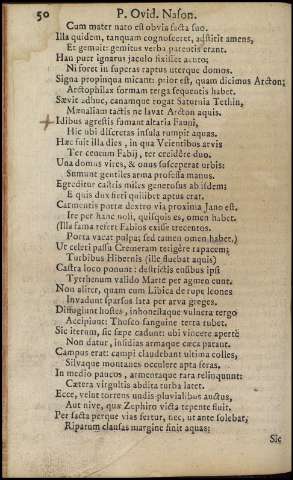 50 P. Ovid. Nason.
Cum mater nato est obvia facta suo.
Illa quidem, tanquam cognosceret, adstitit amens,
Et gemuit: gemitus verba parentis erant.
Han puer ignarus jaculo fixisset acuto;
Ni foret in superas raptus uterque domos.
Signa propinqua micant: prior est, quam dicimus Arcton;
Arctophilax formam terga sequentis habet.
Sævit adhuc, canamque rogat Saturnia Tethin,
Mænaliam tactis ne lavat Arcton aquis.
Idibus agrestis fumant altaria Fauni,
Hic ubi discretas insula rumpit aquas.
Hæc fuit illa dies, in qua Veientibus arvis
Ter centum Fabij, ter cecidêre duo.
Una domus vires, & onus susceperat urbis:
Sumunt gentiles arma professa manus.
Egreditur castris miles generosus ab isdem;
E quis dux fieri quilibet aptus erat.
Carmentis portæ dextro via proxima Jano est.
Ire per hanc noli, quisquis es, omen habet.
(Illa fama refert Fabios exisse trecentos.
Porta vacat culpa; sed tamen omen habet.)
Ut celeri passu Cremeram tetigêre rapacem;
Turbibus Hibernis (ille fluebat aquis)
Castra loco ponunt: destrictis ensibus ipsi
Tyrrhenum valido Marte per agmen eunt.
Non aliter, quam cum Libica de rupe leones
Invadunt sparsos lata per arva greges.
Diffugiunt hostes, inhonestaque vulnera tergo
Accipiunt: Thusco sanguine terra rubet.
Sic iterum, sic sæpe cadunt: ubi vincere apertè
Non datur, insidias armaque cæca parant.
Campus erat: campi claudebant ultima colles,
Silvaque montanas occulere apta feras.
In medio paucos, armentaque rara relinquunt:
Cætera virgultis abdita turba latet.
Ecce, velut torrens undis pluvialibus auctus,
Aut nive, quæ Zephiro victa repente fluit.
Per sacta perque vias fertur, nec, ut ante solebat,
Riparum clausas margine finit aquas;
Sic